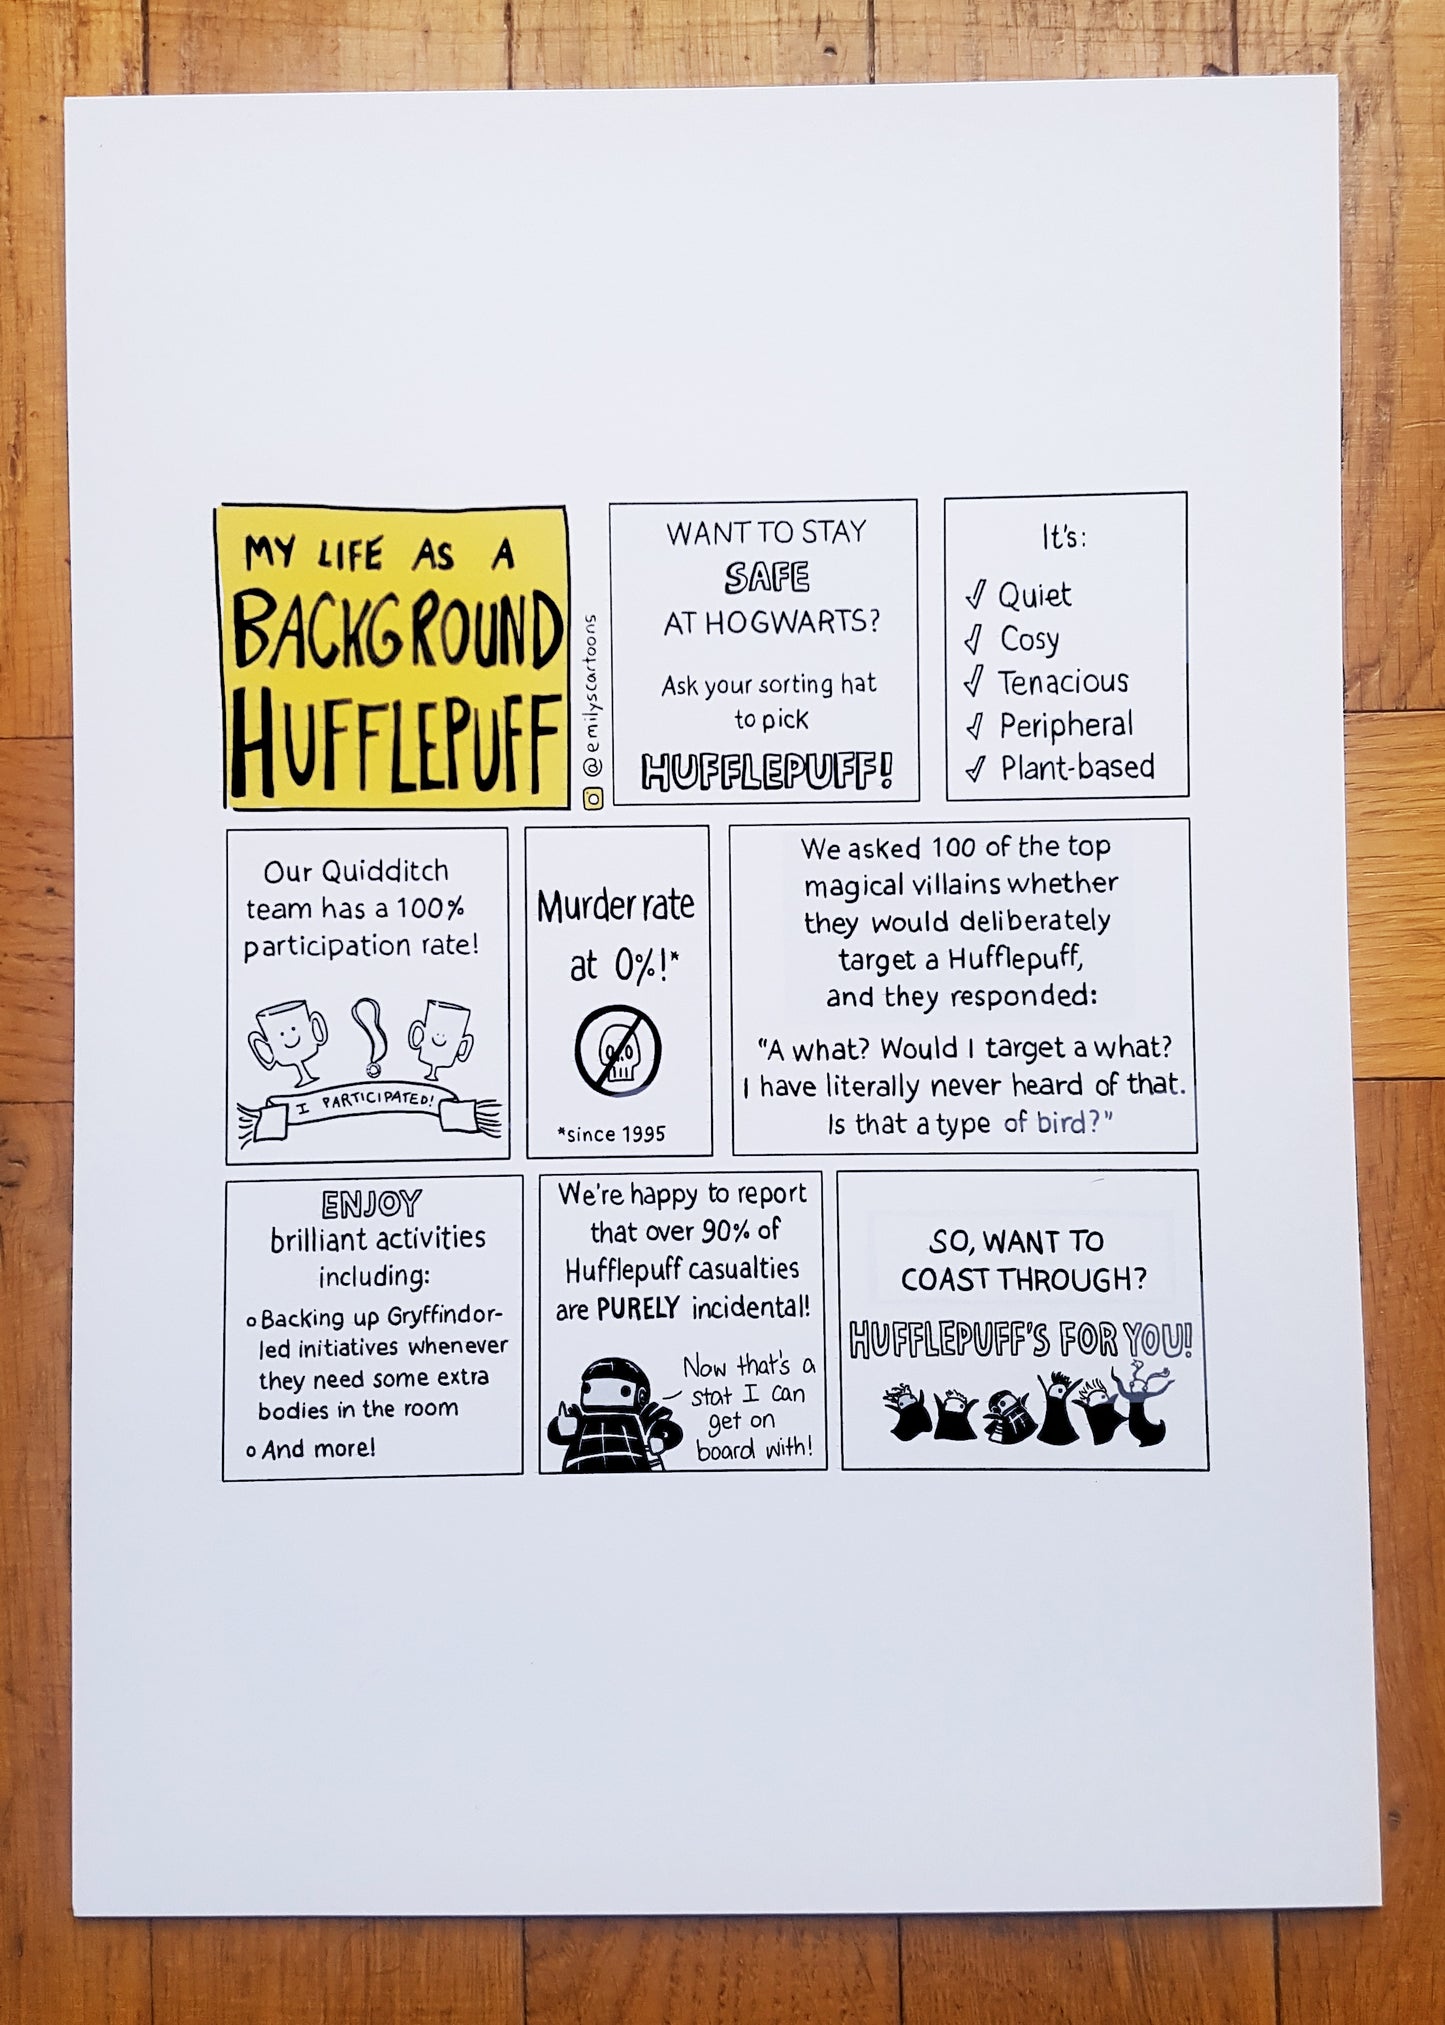 MY LIFE AS A
BACKGROUND
HUFFLEPUFF
@emilyscartoons
WANT TO STAY
SAFE
AT HOGWARTS?
Ask your sorting hat
to pick
HUFFLEPUFF!
It's:
√ Quiet
√ Cosy
√ Tenacious
√ Peripheral
√ Plant-based
Our Quidditch
team has a 100%
participation rate!
I PARTICIPATED!
Murder rate
at 0%!*
*since 1995
We asked 100 of the top
magical villains whether
they would deliberately
target a Hufflepuff,
and they responded:
"A what? Would I target a what?
I have literally never heard of that.
Is that a type of bird?"
ENJOY
brilliant activities
including:
o Backing up Gryffindor-
led initiatives whenever
they need some extra
bodies in the room
o And more!
We're happy to report
that over 90% of
Hufflepuff casualties
are PURELY incidental!
Now that's a
stat I can
get on
board with!
SO, WANT TO
COAST THROUGH?
HUFFLEPUFF'S FOR YOU!